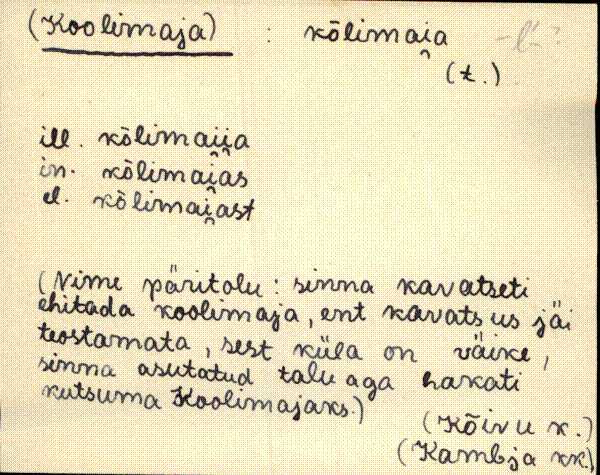 (Koolimaja) : kõlimai̯a -l'- ?
(t.)
ill. kõlimai̯i̯a
in. kõlimai̯as
el. kõlimai̯ast
(Nime päritolu: sinna kavatseti
ehitada koolimaja, ent kavatsus jäi
teostamata, sest küla on väike,
sinna asutatud talu aga hakati
kutsuma Koolimajaks.)
(Kõivu k.)
(Kambja kk.)